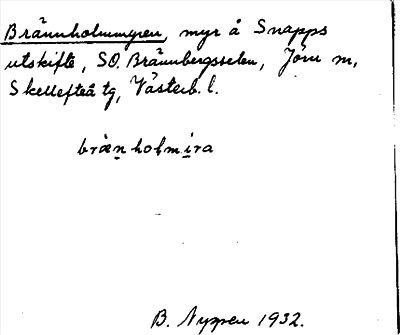 Brännholmmyren, myr å Snapps
utskifte, SO. Brännbergsselen, Jörn m,
Skellefteå tg, Västerb. l.
bræn̲holmi̲ra
B. Nyppen 1932.